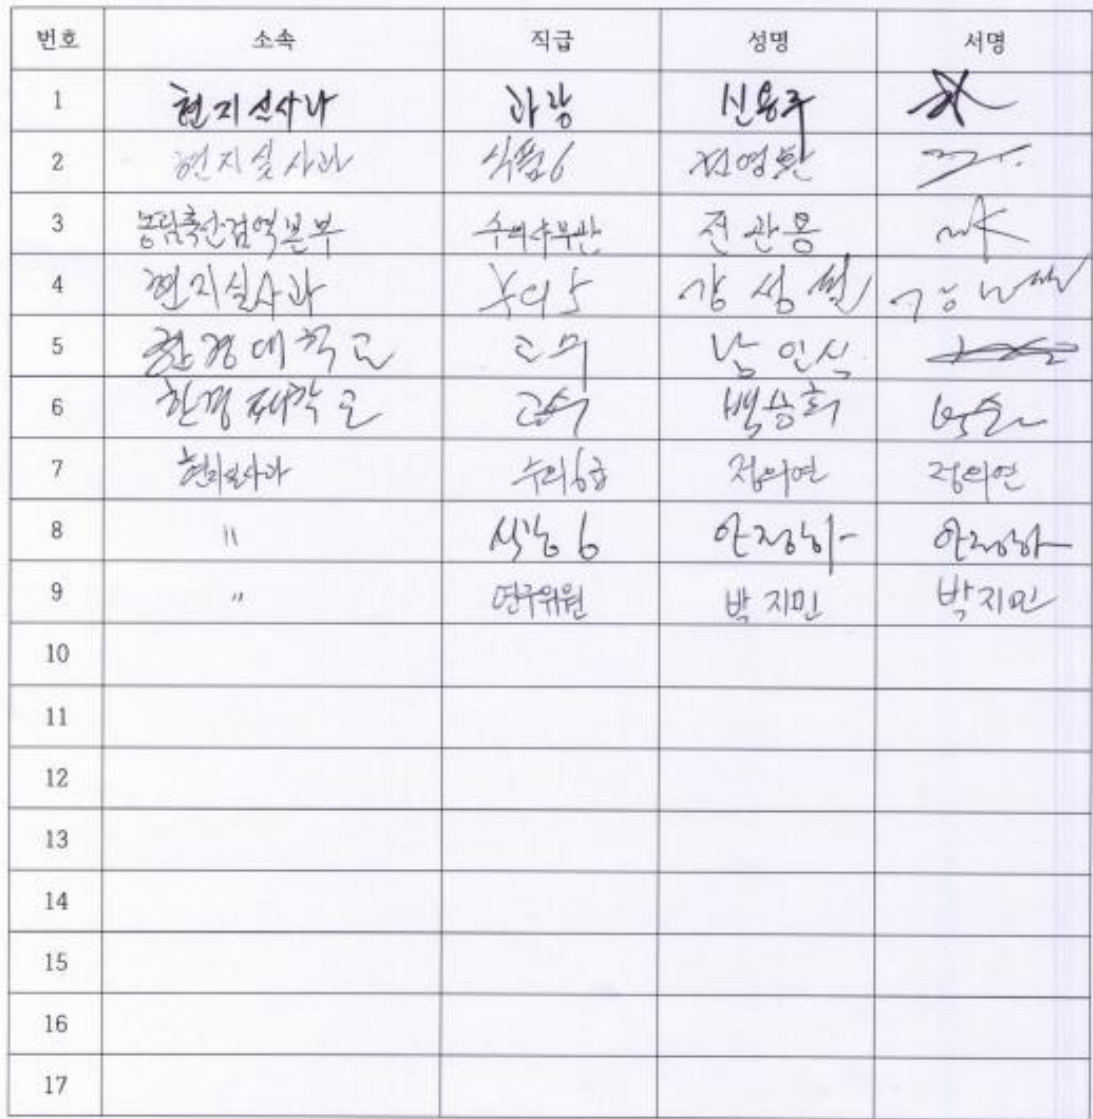 번호 소속 직급 성명 서명
1 현지실사과 과장 신용주
2 현지실사과 식품6
3 농림축산검역본부 수의사무관 전관용
4 현지실사과 수의5 강성필
5 한경대학교 교수 남인식
6 한경대학교 교수 백승희
7 현지실사과 수의6급 정의연 정의연
8 " 안정하 안정하
9 " 연구위원 박지민 박지민
10
11
12
13
14
15
16
17